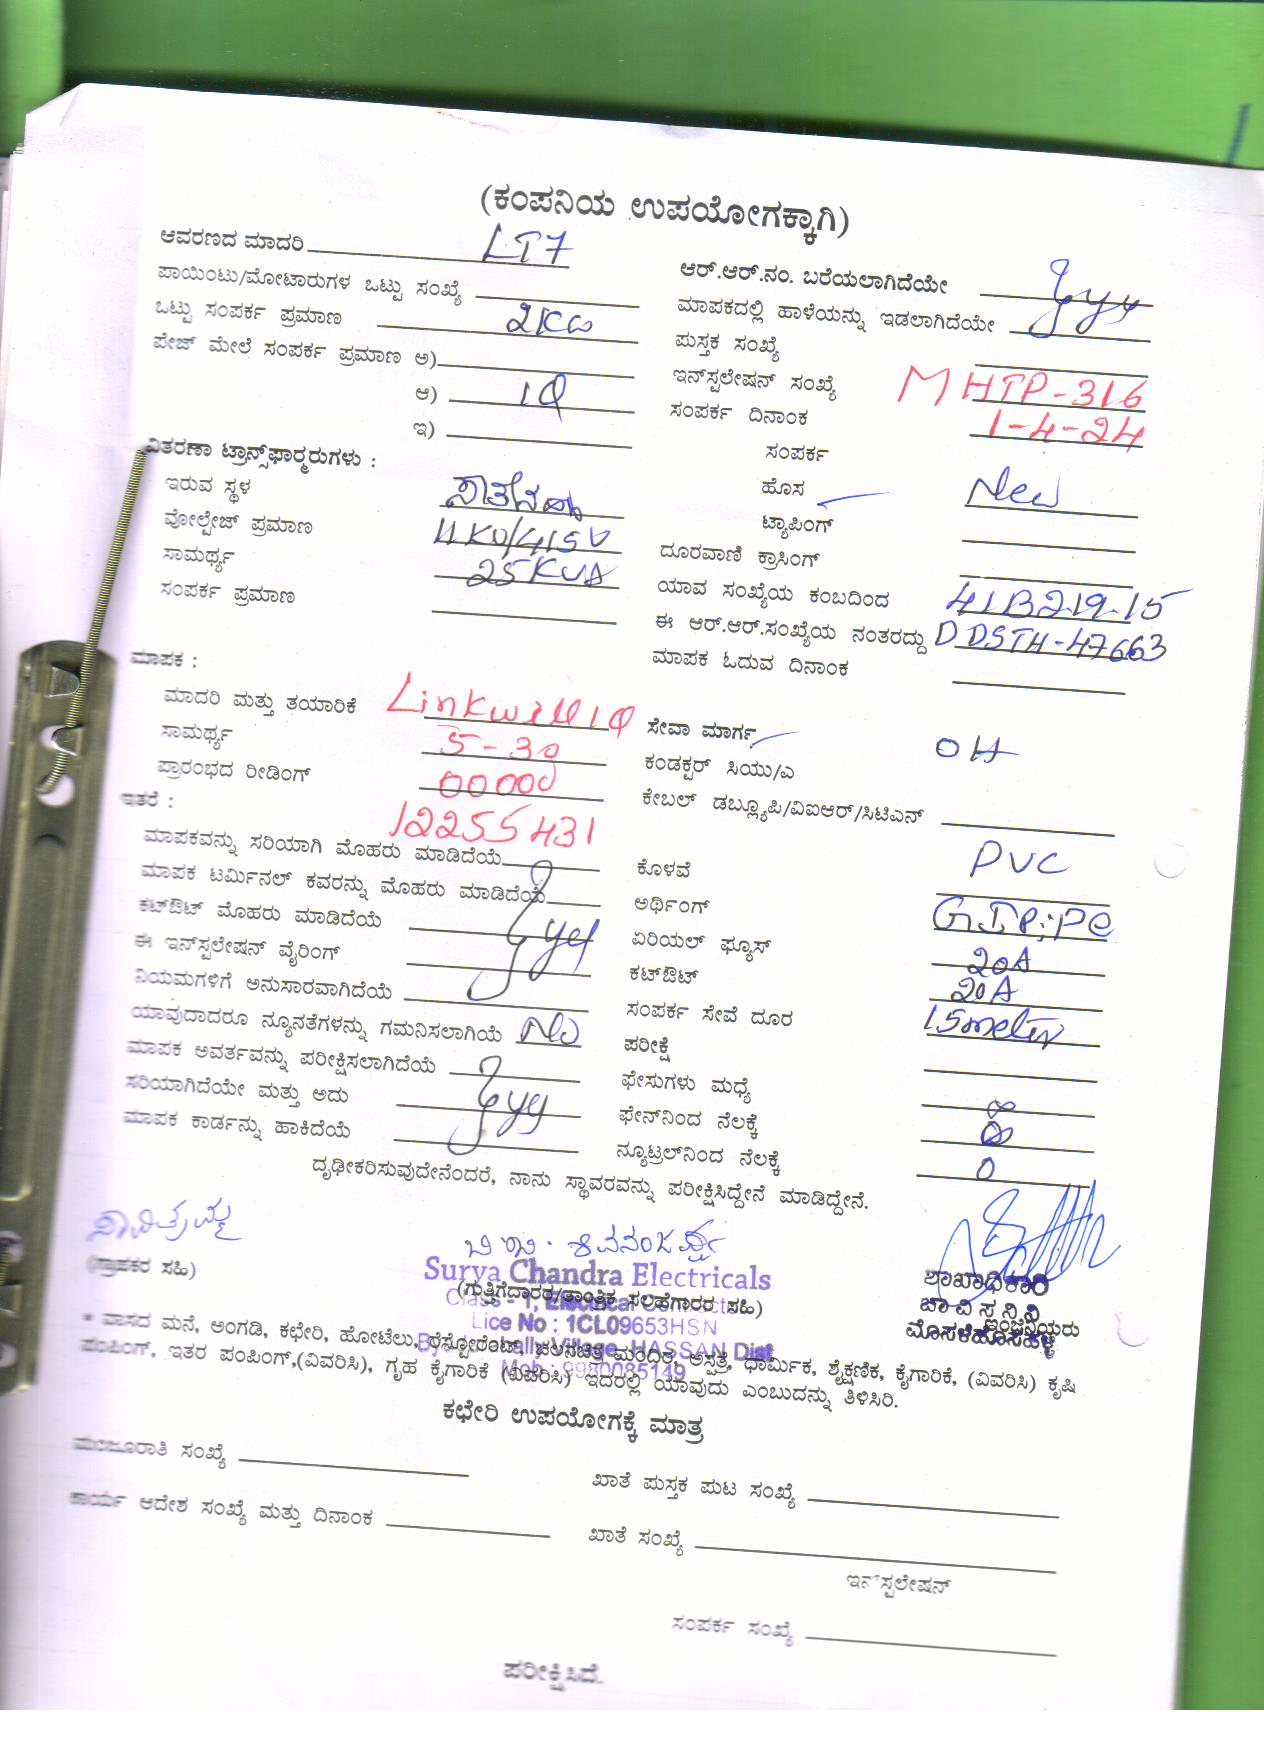 (ಕಂಪನಿಯ ಉಪಯೋಗಕ್ಕಾಗಿ)
ಆವರಣದ ಮಾದರಿ LT7
ಪಾಯಿಂಟು/ಮೋಟಾರುಗಳ ಒಟ್ಟು ಸಂಖ್ಯೆ
ಒಟ್ಟು ಸಂಪರ್ಕ ಪ್ರಮಾಣ 2KW
ಪೇಜ್ ಮೇಲೆ ಸಂಪರ್ಕ ಪ್ರಮಾಣ ಅ)
ಆ) 1Φ
ಇ)
ವಿತರಣಾ ಟ್ರಾನ್ಸ್‌ಫಾರ್ಮರುಗಳು :
ಇರುವ ಸ್ಥಳ
ವೋಲ್ಟೇಜ್ ಪ್ರಮಾಣ 11KV/415V
ಸಾಮರ್ಥ್ಯ 25KVA
ಸಂಪರ್ಕ ಪ್ರಮಾಣ
ಮಾಪಕ :
ಮಾದರಿ ಮತ್ತು ತಯಾರಿಕೆ Linkwell 1Φ
ಸಾಮರ್ಥ್ಯ 5-30
ಪ್ರಾರಂಭದ ರೀಡಿಂಗ್ 00000
ಇತರೆ : 12255431
ಮಾಪಕವನ್ನು ಸರಿಯಾಗಿ ಮೊಹರು ಮಾಡಿದೆಯೆ
ಮಾಪಕ ಟರ್ಮಿನಲ್ ಕವರನ್ನು ಮೊಹರು ಮಾಡಿದೆಯೆ
ಕಟ್‌ಔಟ್ ಮೊಹರು ಮಾಡಿದೆಯೆ
ಈ ಇನ್‌ಸ್ಟಲೇಷನ್ ವೈರಿಂಗ್ yes
ನಿಯಮಗಳಿಗೆ ಅನುಸಾರವಾಗಿದೆಯೆ
ಯಾವುದಾದರೂ ನ್ಯೂನತೆಗಳನ್ನು ಗಮನಿಸಲಾಗಿಯೆ No
ಮಾಪಕ ಅವರ್ತವನ್ನು ಪರೀಕ್ಷಿಸಲಾಗಿದೆಯೆ
ಸರಿಯಾಗಿದೆಯೇ ಮತ್ತು ಅದು yes
ಮಾಪಕ ಕಾರ್ಡನ್ನು ಹಾಕಿದೆಯೆ
ಆರ್.ಆರ್.ನಂ. ಬರೆಯಲಾಗಿದೆಯೇ
ಮಾಪಕದಲ್ಲಿ ಹಾಳೆಯನ್ನು ಇಡಲಾಗಿದೆಯೇ yes
ಪುಸ್ತಕ ಸಂಖ್ಯೆ
ಇನ್‌ಸ್ಟಲೇಷನ್ ಸಂಖ್ಯೆ MHTP-316
ಸಂಪರ್ಕ ದಿನಾಂಕ 1-4-24
ಸಂಪರ್ಕ
ಹೊಸ New
ಟ್ಯಾಪಿಂಗ್
ದೂರವಾಣಿ ಕ್ರಾಸಿಂಗ್
ಯಾವ ಸಂಖ್ಯೆಯ ಕಂಬದಿಂದ 41B219-15
ಈ ಆರ್.ಆರ್.ಸಂಖ್ಯೆಯ ನಂತರದ್ದು DDSTH-47663
ಮಾಪಕ ಓದುವ ದಿನಾಂಕ
ಸೇವಾ ಮಾರ್ಗ OH
ಕಂಡಕ್ಟರ್ ಸಿಯು/ಎ
ಕೇಬಲ್ ಡಬ್ಲ್ಯೂಪಿ/ವಿಐಆರ್/ಸಿಟಿಎನ್
ಕೊಳವೆ PVC
ಅರ್ಥಿಂಗ್ GI Pipe
ಏರಿಯಲ್ ಫ್ಯೂಸ್ 20A
ಕಟ್‌ಔಟ್ 20A
ಸಂಪರ್ಕ ಸೇವೆ ದೂರ 15meter
ಪರೀಕ್ಷೆ
ಫೇಸುಗಳು ಮಧ್ಯೆ
ಫೇಸ್‌ನಿಂದ ನೆಲಕ್ಕೆ
ನ್ಯೂಟ್ರಲ್‌ನಿಂದ ನೆಲಕ್ಕೆ 0
ದೃಢೀಕರಿಸುವುದೇನೆಂದರೆ, ನಾನು ಸ್ಥಾವರವನ್ನು ಪರೀಕ್ಷಿಸಿದ್ದೇನೆ ಮಾಡಿದ್ದೇನೆ.
ಸಾವಿತ್ರಮ್ಮ
(ಗ್ರಾಹಕರ ಸಹಿ)
Surya Chandra Electricals
(ಗುತ್ತಿಗೆದಾರರ/ತಾಂತ್ರಿಕ ಸಲಹೆಗಾರರ ಸಹಿ)
Class - 1, Electrical Contractor
Lice No : 1CL09653HSN
Village, HASSAN Dist
Mob : 9980085149
ಶಾಖಾಧಿಕಾರಿ
ಚಾ ವಿ ಸ ನಿ ನಿ
ಇಂಜಿನಿಯರು
ಮೊಸಳೆಹೊಸಹಳ್ಳಿ
* ವಾಸದ ಮನೆ, ಅಂಗಡಿ, ಕಛೇರಿ, ಹೋಟೆಲು, ರೆಸ್ಟೋರೆಂಟ್, ಚಲನಚಿತ್ರ ಮಂದಿರ, ಆಸ್ಪತ್ರೆ, ಧಾರ್ಮಿಕ, ಶೈಕ್ಷಣಿಕ, ಕೈಗಾರಿಕೆ, (ವಿವರಿಸಿ) ಕೃಷಿ
ಪಂಪಿಂಗ್, ಇತರ ಪಂಪಿಂಗ್,(ವಿವರಿಸಿ), ಗೃಹ ಕೈಗಾರಿಕೆ (ವಿವರಿಸಿ) ಇದರಲ್ಲಿ ಯಾವುದು ಎಂಬುದನ್ನು ತಿಳಿಸಿರಿ.
ಕಛೇರಿ ಉಪಯೋಗಕ್ಕೆ ಮಾತ್ರ
ಮಂಜೂರಾತಿ ಸಂಖ್ಯೆ
ಖಾತೆ ಪುಸ್ತಕ ಪುಟ ಸಂಖ್ಯೆ
ಕಾರ್ಯ ಆದೇಶ ಸಂಖ್ಯೆ ಮತ್ತು ದಿನಾಂಕ
ಖಾತೆ ಸಂಖ್ಯೆ
ಇನ್‌ಸ್ಪಲೇಷನ್
ಸಂಪರ್ಕ ಸಂಖ್ಯೆ
ಪರೀಕ್ಷಿಸಿದೆ.